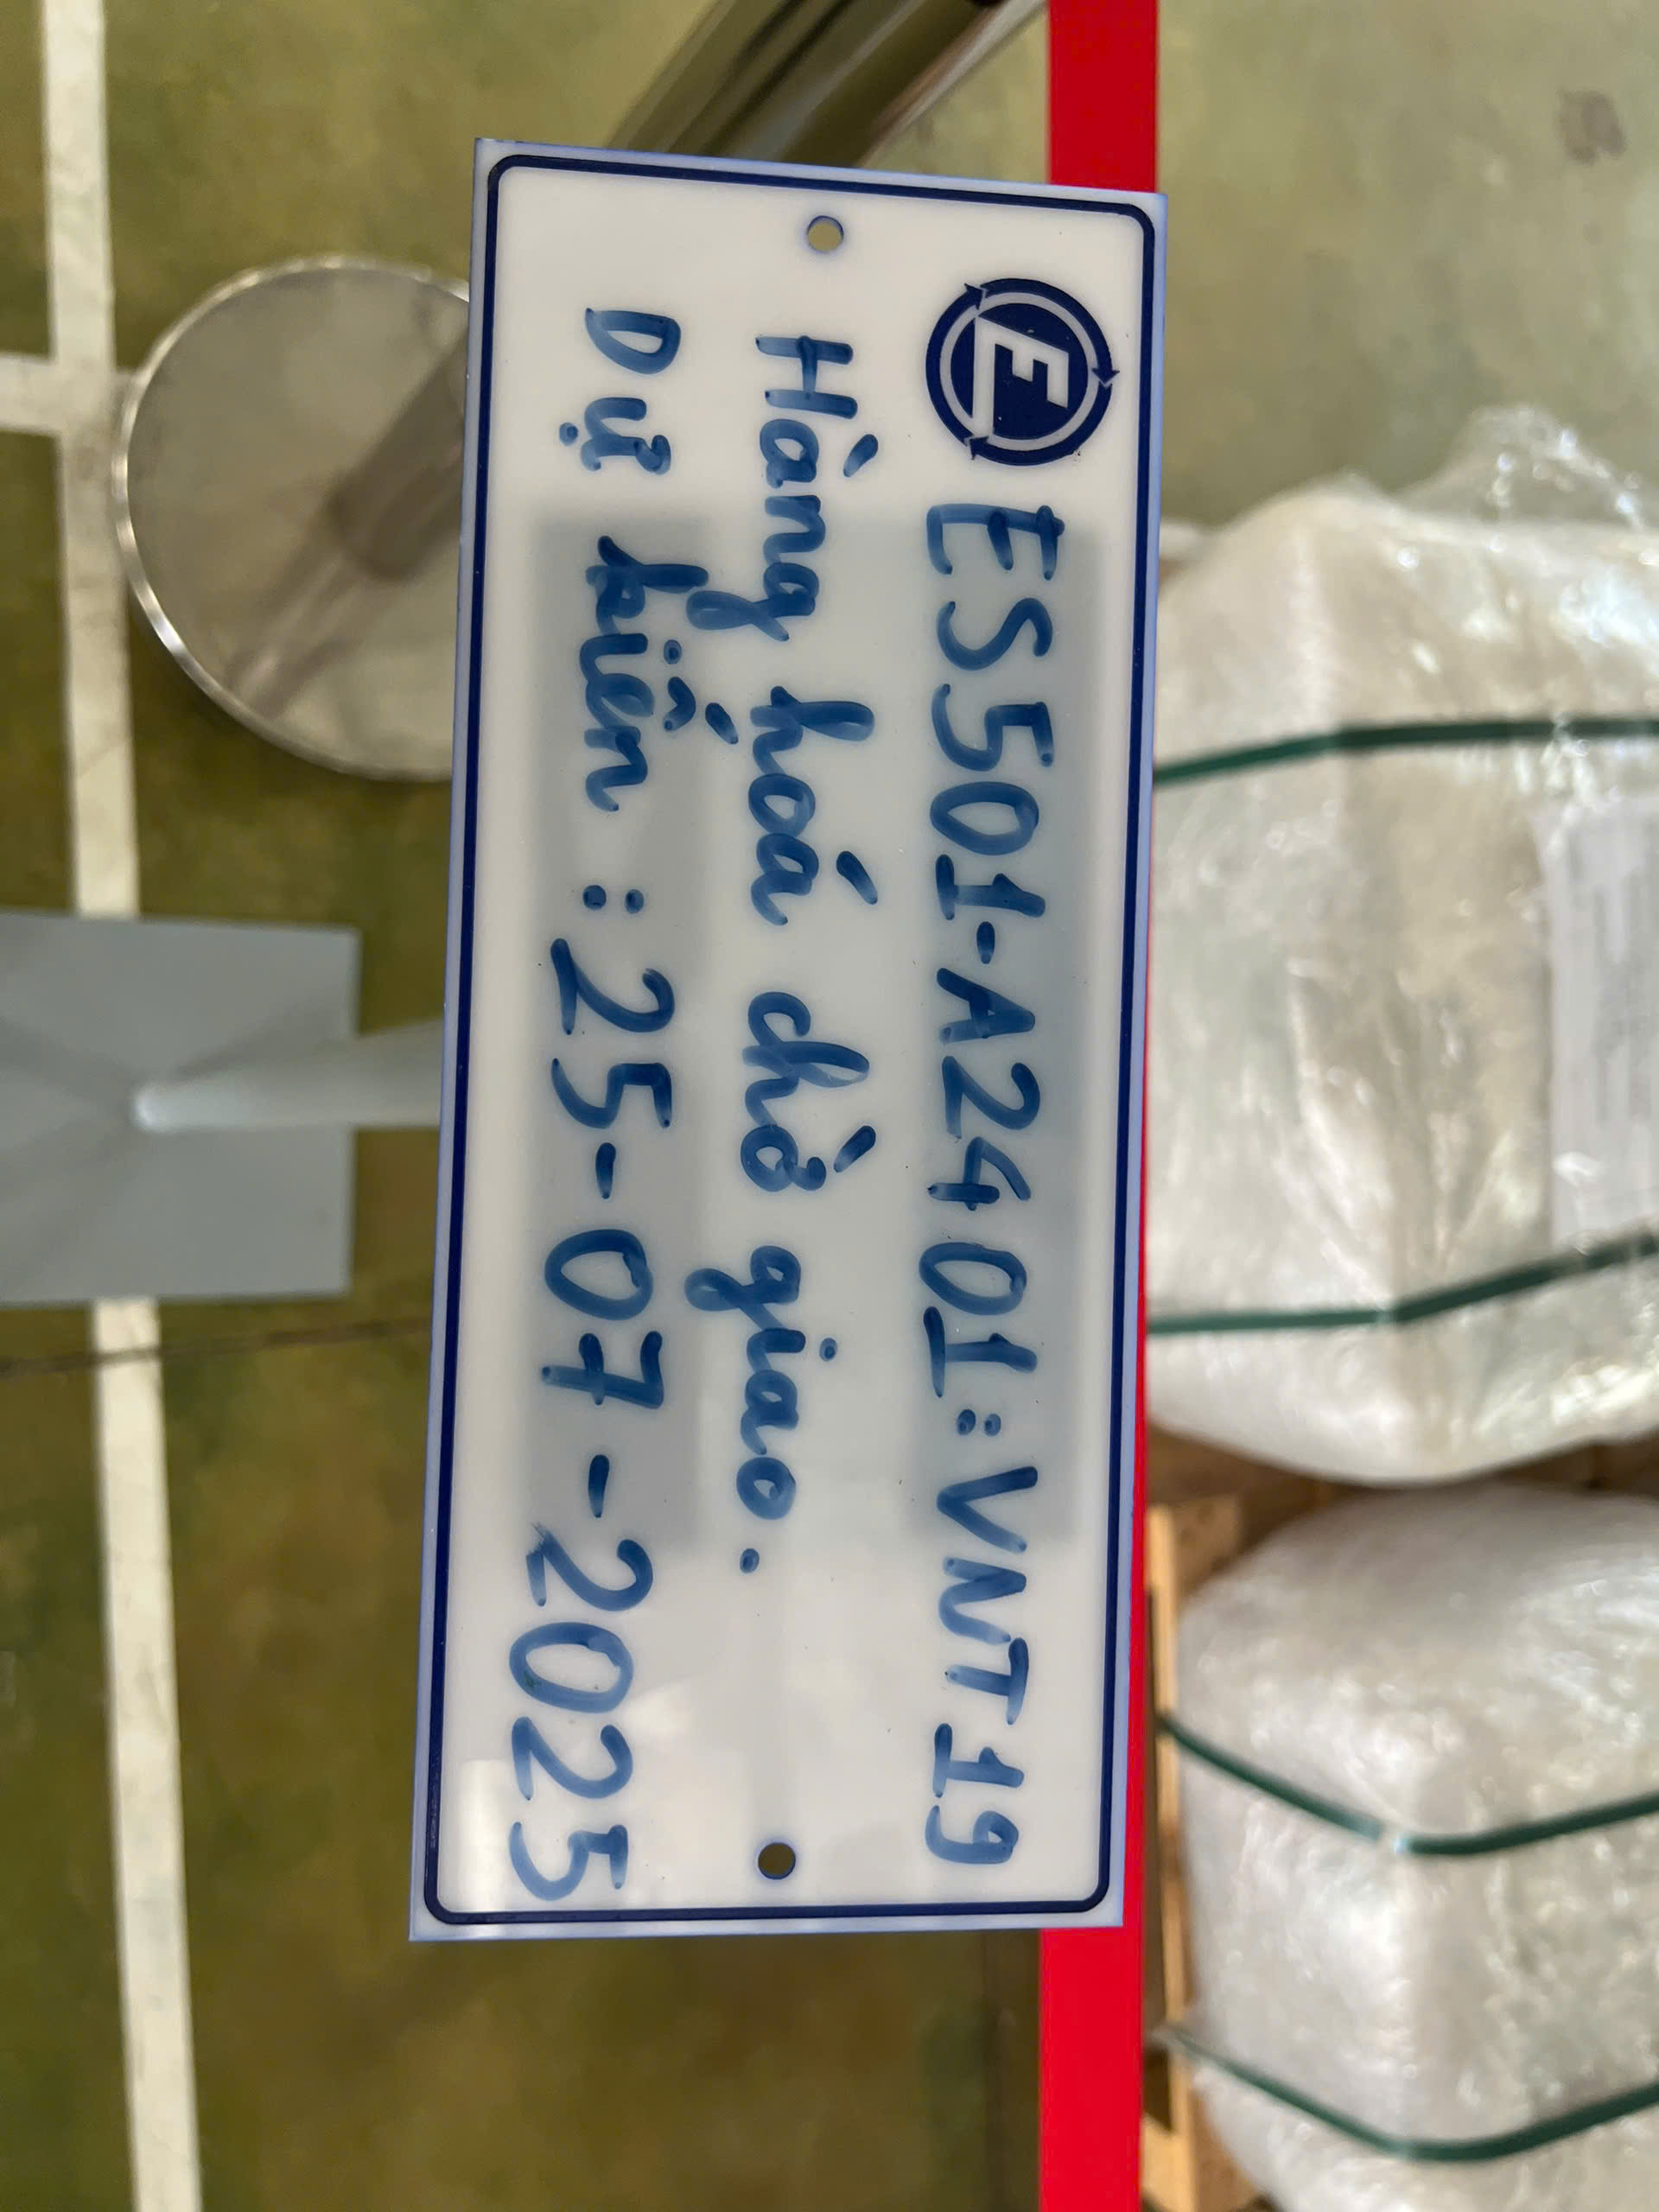 ES501-A2401: VNT19
Hàng hoá chờ giao.
Dự kiến : 25-07-2025